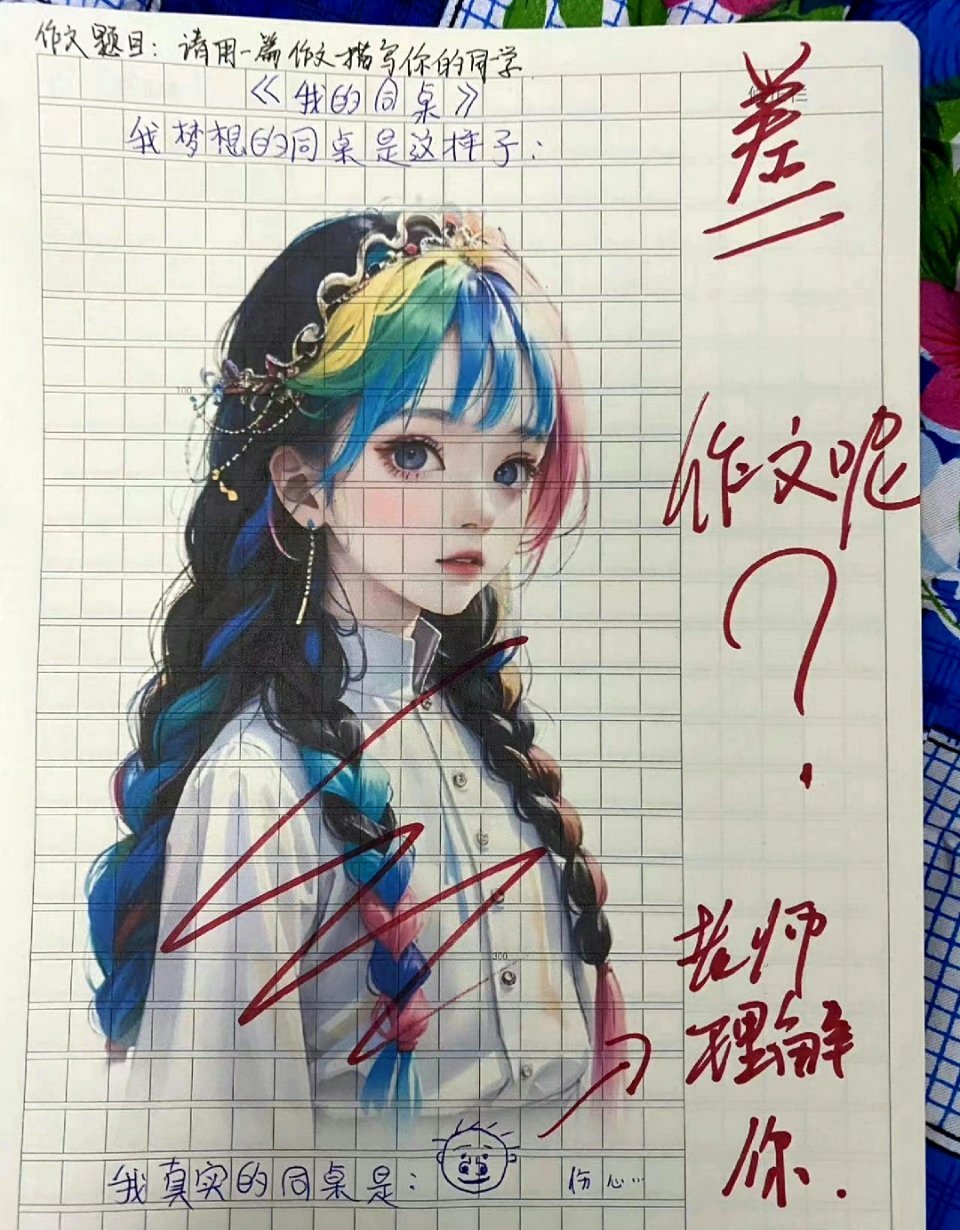 作文题目：请用一篇作文描写你的同学
《我的同桌》
我梦想的同桌是这样子：
差
100
作文呢
？
300
老师
理解
你.
我真实的同桌是：
伤心…